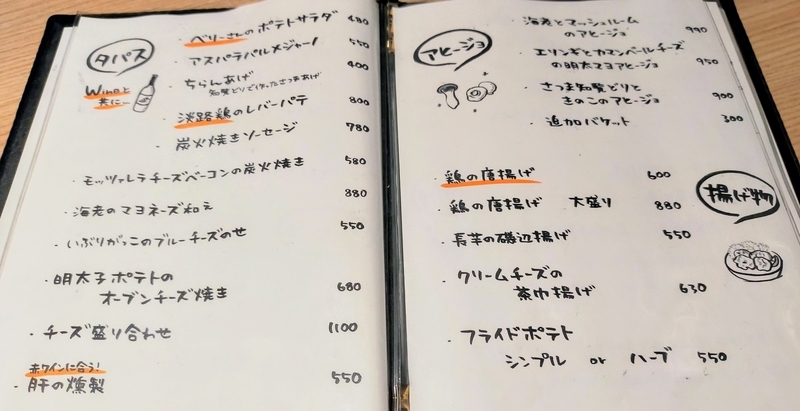 タパス
Wineと
共に…
・ベリーさんのポテトサラダ 480
・アスパラパルメジャーノ 550
・ちらんあげ 400
知覧どりで作ったさつまあげ
・淡路鶏のレバーパテ 800
・炭火焼きソーセージ 780
・モッツァレラチーズベーコンの炭火焼き 580
・海老のマヨネーズ和え 880
・いぶりがっこのブルーチーズのせ 550
・明太子ポテトの
オーブンチーズ焼き 680
・チーズ盛り合わせ 1100
赤ワインに合う!
・肝の燻製 550
アヒージョ
・海老とマッシュルーム
のアヒージョ 990
・エリンギとカマンベールチーズ
の明太マヨアヒージョ 950
・さつま知覧どりと
きのこのアヒージョ 900
・追加バケット 300
揚げ物
・鶏の唐揚げ 600
・鶏の唐揚げ 大盛り 880
・長芋の磯辺揚げ 550
・クリームチーズの
茶巾揚げ 630
・フライドポテト
シンプル or ハーブ 550